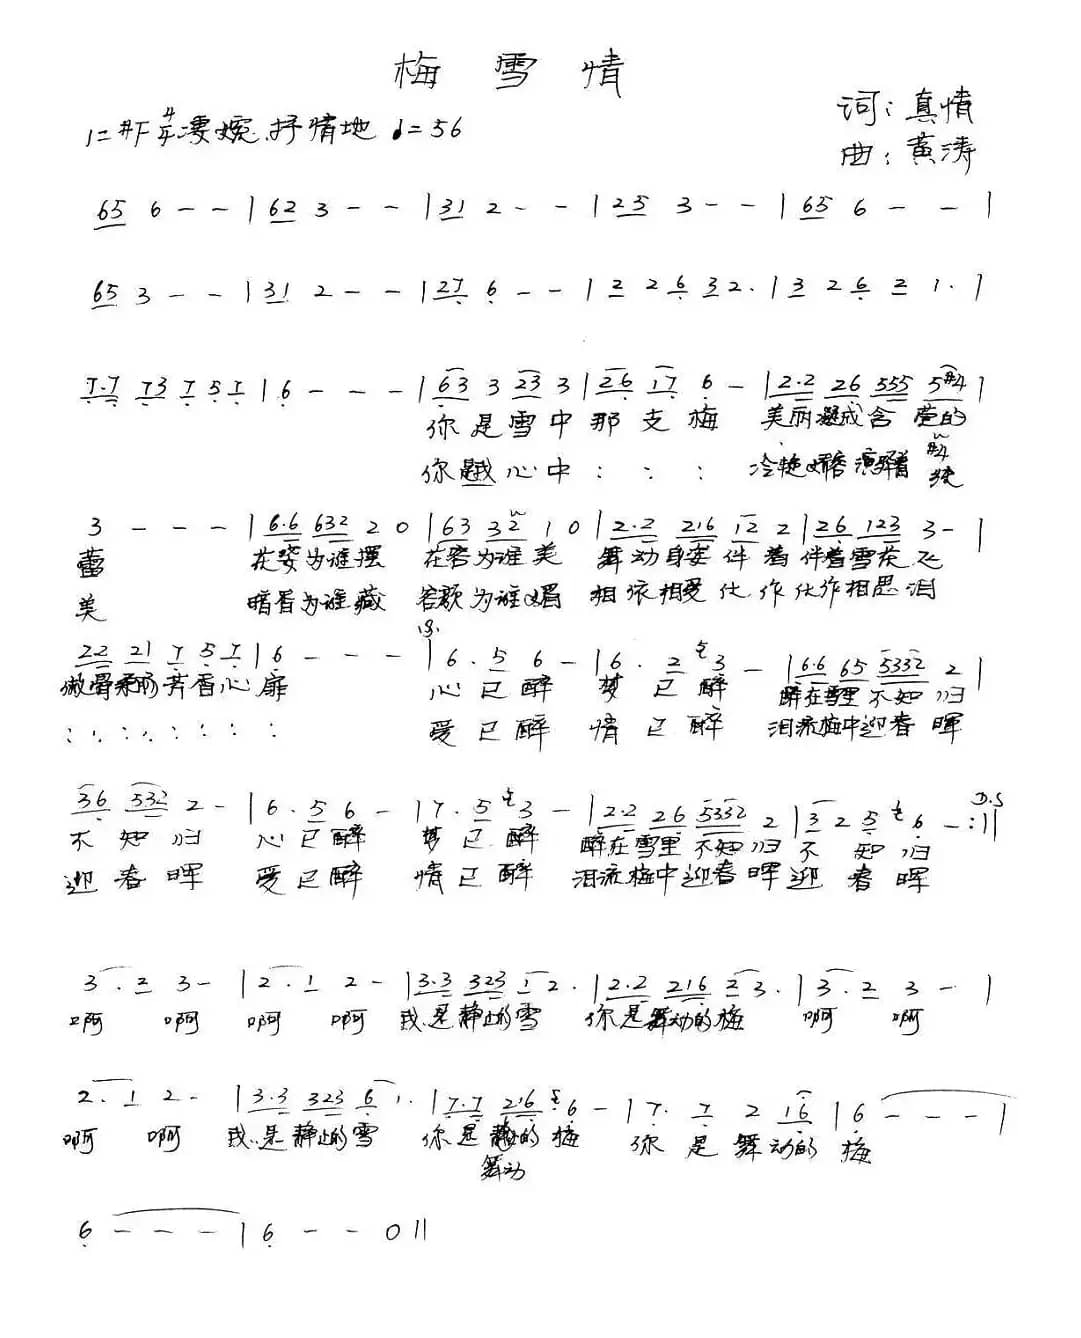 梅雪情
1=#F 4/4 凄婉.抒情地 ♩=56
词:真情
曲:黄涛
65 6 - - | 62 3 - - | 31 2 - - | 25 3 - - | 65 6 - - |
65 3 - - | 31 2 - - | 27 6 - - | 2 2 6 3 2. | 3 2 6 2 1. |
7.7 73 7 5 7 | 6 - - - | 63 3 23 3 | 26 17 6 - | 2.2 26 555 5#4 |
你是雪中那支梅 美丽凝成含 的
你是我心中 : : : 冷艳
3 - - - | 6.6 632 2 0 | 63 32 1 0 | 2.2 216 12 2 | 26 123 3 - |
蕾 在姿为谁摆 在容为谁美 舞动身姿伴着伴着雪花飞
美 暗香为谁藏 容颜为谁媚 相依相爱化作化作相思泪
22 21 7 5 7 | 6 - - - | 6. 5 6 - | 6. 2 3 - | 6.6 65 5332 2 |
傲骨柔肠芳香心扉 心已醉 梦已醉 醉在雪里不知归
: : : : : : : : 爱已醉 情已醉 泪流梅中迎春晖
36 532 2 - | 6. 5 6 - | 7. 5 3 - | 2.2 26 5332 2 | 3 2 5 6 - :|| D.S
不知归 心已醉 梦已醉 醉在雪里不知归不知归
迎春晖 爱已醉 情已醉 泪流梅中迎春晖迎春晖
3. 2 3 - | 2. 1 2 - | 3.3 323 1 2. | 2.2 216 2 3. | 3. 2 3 - |
啊 啊 啊 啊 我是静止的雪 你是舞动的梅 啊 啊
2. 1 2 - | 3.3 323 6 1. | 7.7 216 6 - | 7. 7 2 16 | 6 - - - |
啊 啊 我是静止的雪 你是 的梅 你是舞动的梅
舞动
6 - - - | 6 - - 0 ||